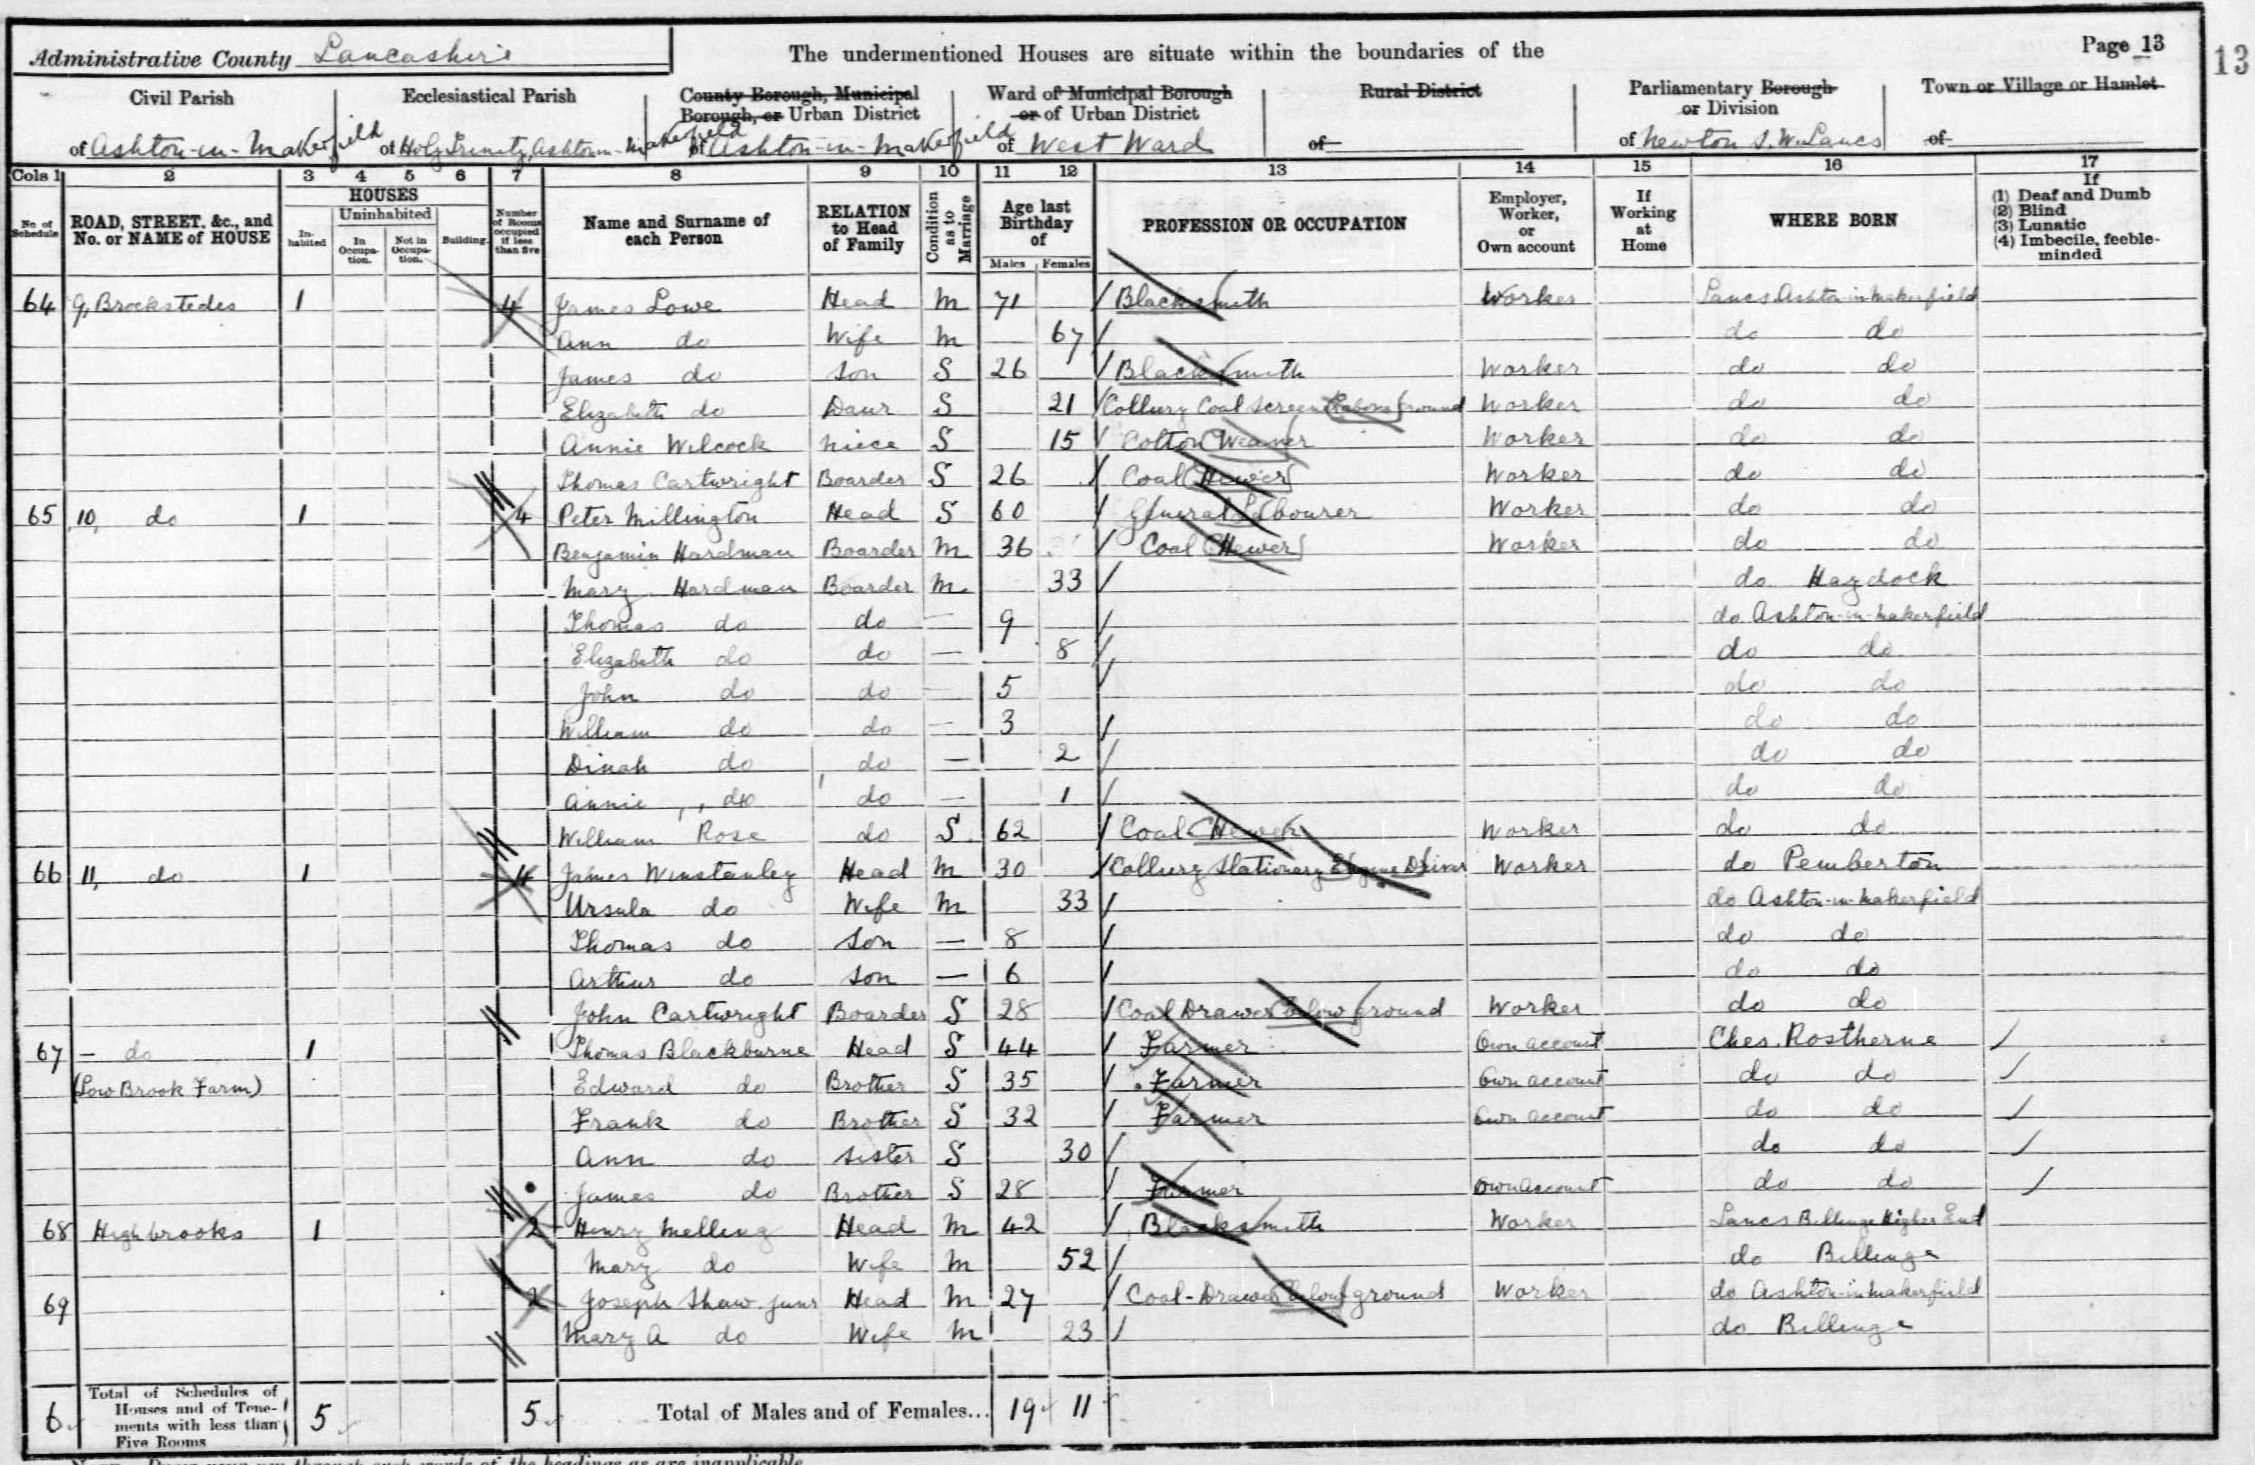 Administrative County Lancashire
The undermentioned Houses are situate within the boundaries of the
Page 13
13
Civil Parish
of Ashton-in-Makerfield
Ecclesiastical Parish
of Holy Trinity, Ashton-in-Makerfield
County Borough, Municipal
Borough, or Urban District
of Ashton-in-Makerfield
Ward of Municipal Borough
or of Urban District
of West Ward
Rural District
of
Parliamentary Borough
or Division
of Newton S.W. Lancs
Town or Village or Hamlet
of
Cols 1 2 3 4 5 6 7 8 9 10 11 12 13 14 15 16 17
No of Schedule
ROAD, STREET, &c., and No. or NAME of HOUSE
HOUSES
Inhabited
Uninhabited
In Occupation.
Not in Occupation.
Building.
Number of Rooms occupied if less than five
Name and Surname of each Person
RELATION to Head of Family
Condition as to Marriage
Age last Birthday of
Males Females
PROFESSION OR OCCUPATION
Employer, Worker, or Own account
If Working at Home
WHERE BORN
If
(1) Deaf and Dumb
(2) Blind
(3) Lunatic
(4) Imbecile, feeble-minded
64 9, Brockstedes 1 4 James Lowe Head M 71 Blacksmith Worker Lancs Ashton-in-Makerfield
Ann do Wife M 67 do do
James do Son S 26 Blacksmith Worker do do
Elizabeth do Daur S 21 Colliery Coal Screen above ground Worker do do
Annie Wilcock Niece S 15 Cotton Weaver Worker do do
Thomas Cartwright Boarder S 26 Coal Hewer Worker do do
65 10, do 1 4 Peter Millington Head S 60 General Labourer Worker do do
Benjamin Hardman Boarder M 36 Coal Hewer Worker do do
Mary Hardman Boarder M 33 do Haydock
Thomas do do — 9 do Ashton-in-Makerfield
Elizabeth do do — 8 do do
John do do — 5 do do
William do do — 3 do do
Dinah do do — 2 do do
Annie do do — 1 do do
William Rose do S 62 Coal Hewer Worker do do
66 11, do 1 4 James Winstanley Head M 30 Colliery Stationary Engine Driver Worker do Pemberton
Ursula do Wife M 33 do Ashton-in-Makerfield
Thomas do Son — 8 do do
Arthur do Son — 6 do do
John Cartwright Boarder S 28 Coal Drawer below ground Worker do do
67 — do 1 Thomas Blackburne Head S 44 Farmer Own account Ches. Rostherne
(Low Brook Farm) Edward do Brother S 35 Farmer Own account do do
Frank do Brother S 32 Farmer Own account do do
Ann do Sister S 30 do do
James do Brother S 28 Farmer Own account do do
68 Highbrooks 1 2 Henry Melling Head M 42 Blacksmith Worker Lancs Billinge Higher End
Mary do Wife M 52 do Billinge
69 2 Joseph Shaw Junr Head M 27 Coal-Drawer below ground Worker do Ashton-in-Makerfield
Mary A do Wife M 23 do Billinge
6 Total of Schedules of Houses and of Tenements with less than Five Rooms 5 5 Total of Males and of Females... 19 11